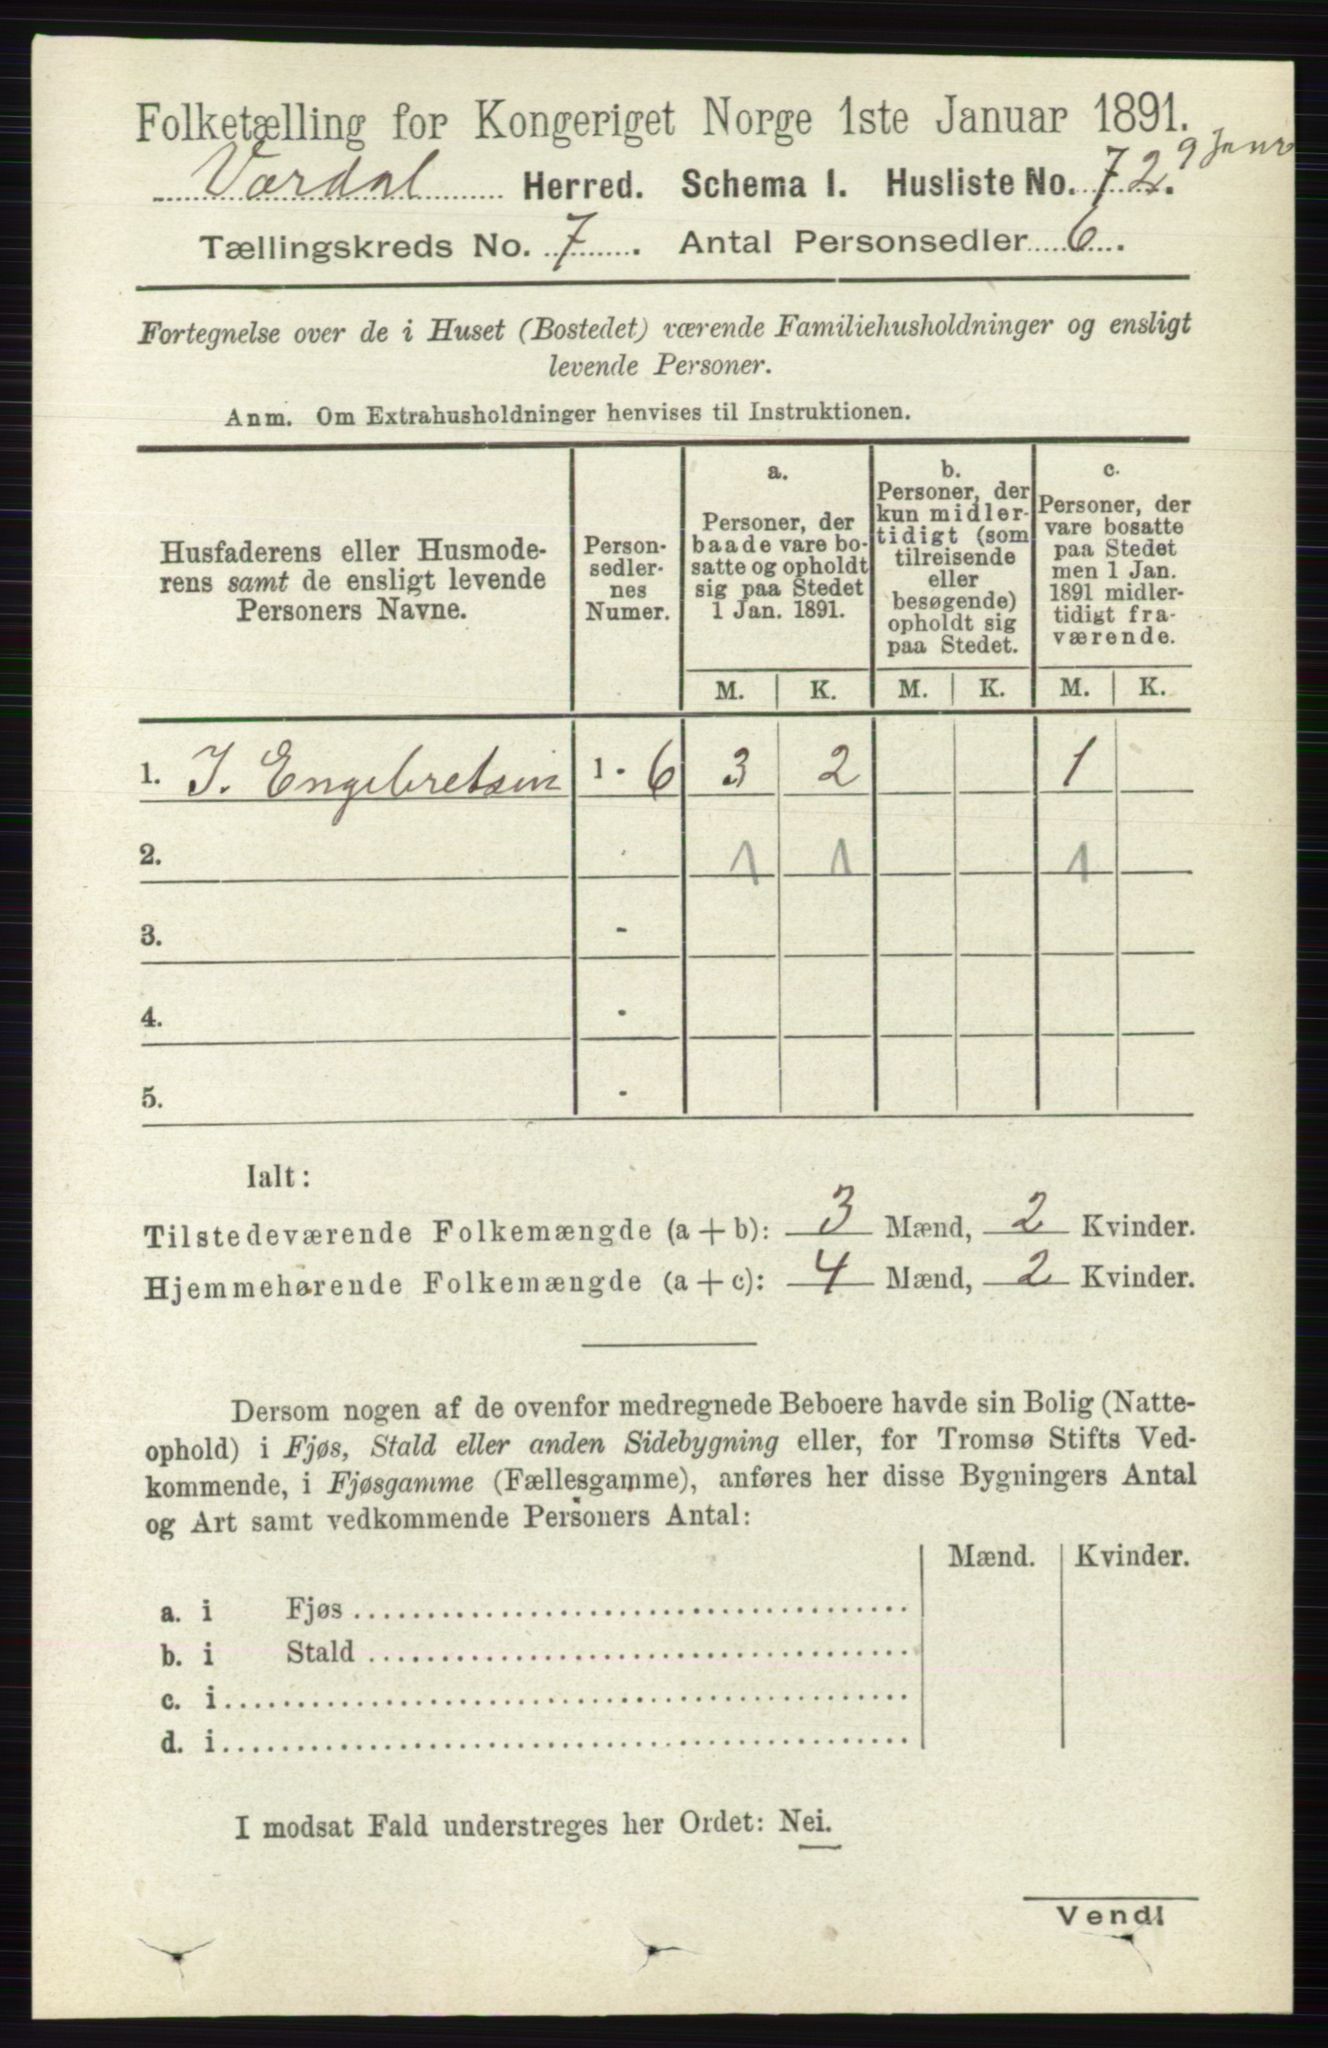 Folketælling for Kongeriget Norge 1ste Januar 1891.
9 Janr
Vardal Herred. Schema I. Husliste No. 72.
Tællingskreds No. 7. Antal Personsedler 6.
Fortegnelse over de i Huset (Bostedet) værende Familiehusholdninger og ensligt
levende Personer.
Anm. Om Extrahusholdninger henvises til Instruktionen.
Husfaderens eller Husmode-
rens samt de ensligt levende
Personers Navne.
Person-
sedler-
nes
Numer.
a.
Personer, der
baade vare bo-
satte og opholdt
sig paa Stedet
1 Jan. 1891.
b.
Personer, der
kun midler-
tidigt (som
tilreisende
eller
besøgende)
opholdt sig
paa Stedet.
c.
Personer, der
vare bosatte
paa Stedet
men 1 Jan.
1891 midler-
tidigt fra-
værende.
M. K. M. K. M. K.
1. J. Engebretsen 1 - 6 3 2 1
2. 1 1 1
3. -
4. -
5. -
Ialt:
Tilstedeværende Folkemængde (a + b): 3 Mænd, 2 Kvinder.
Hjemmehørende Folkemængde (a + c): 4 Mænd, 2 Kvinder.
Dersom nogen af de ovenfor medregnede Beboere havde sin Bolig (Natte-
ophold) i Fjøs, Stald eller anden Sidebygning eller, for Tromsø Stifts Ved-
kommende, i Fjøsgamme (Fællesgamme), anføres her disse Bygningers Antal
og Art samt vedkommende Personers Antal:
Mænd. Kvinder.
a. i Fjøs
b. i Stald
c. i
d. i
I modsat Fald understreges her Ordet: Nei.
Vend!